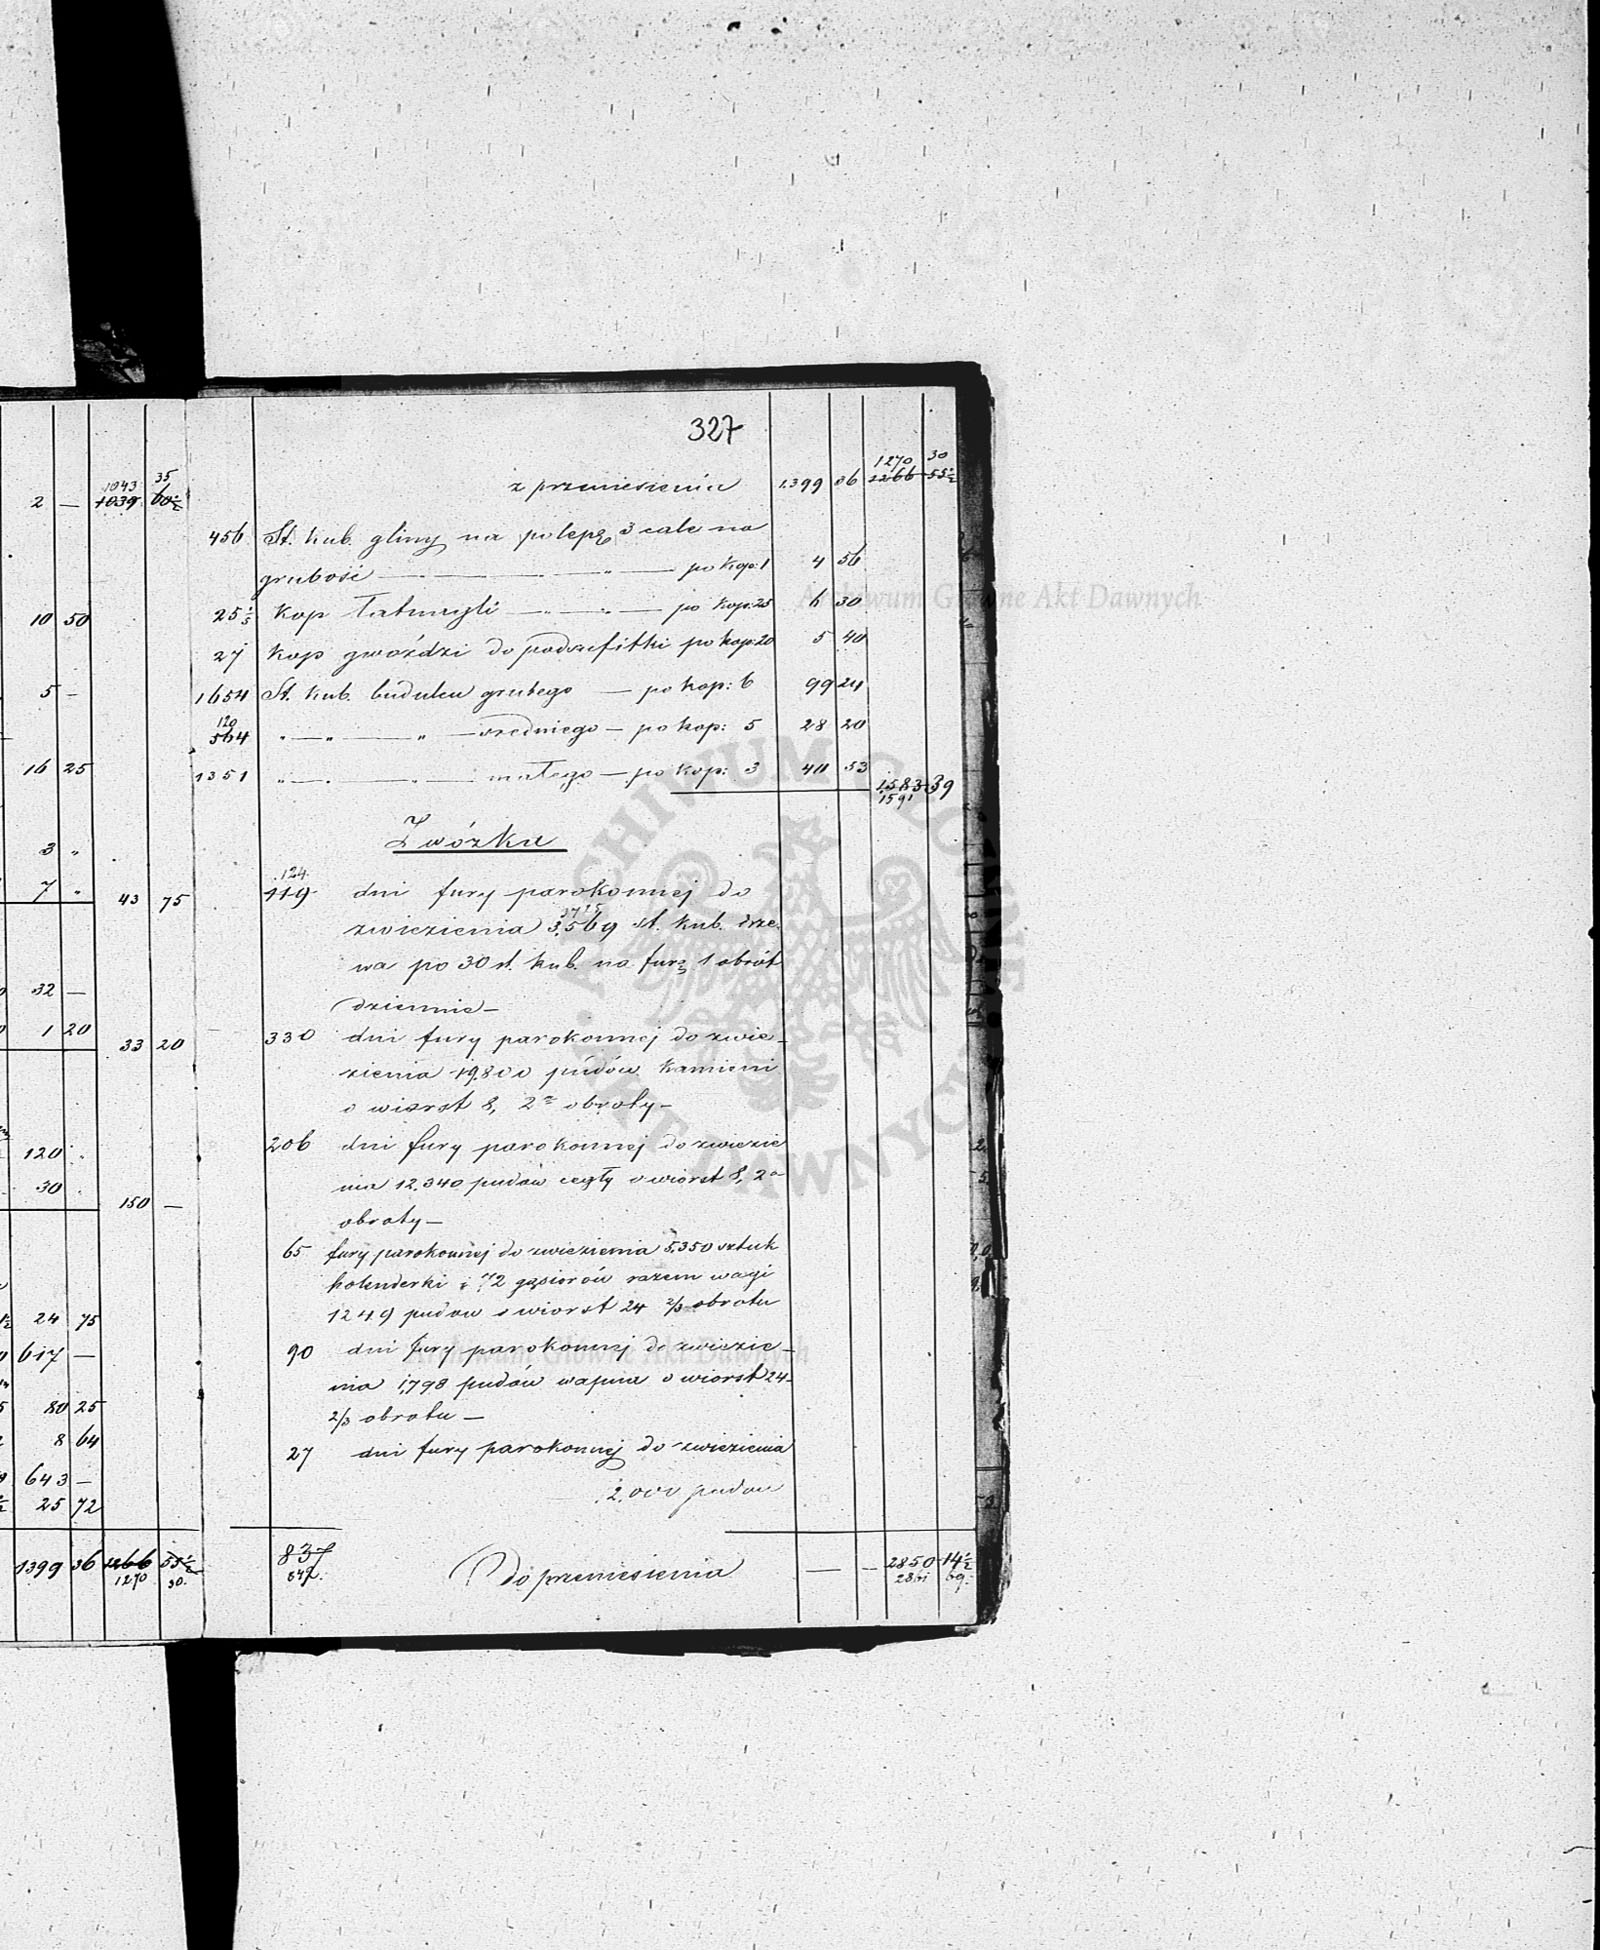 2 — 1043 35
1039 60½
10 50
5 —
16 25
3 "
7 " 43 75
32 —
1 20 33 20
120
30 150 —
24 75
617 —
80 25
8 64
643 —
25 72
1399 36 1266 55½
1270 30
327
z przeniesienia 1.399 86 1270 30
1266 55½
456 St. kub. gliny na polepę 3 cale na
grubość — " — " — po kop: 1 4 56
25⅕ kop Łatwryli — " — " — po kop: 25 6 30
27 kop gwoździ do podsufitki po kop: 20 5 40
1654 St. kub. budulcu grubego — po kop: 6 99 24
120
564 " — " — " — średniego — po kop: 5 28 20
1351 " — " — " — małego — po kop: 3 40 53
1.583 39
1591
Zwózka
124
119 dni fury parokonnej do
3715
zwiezienia 3.569 st. kub. drze-
wa po 30 st. kub. na furę 1 obrót
dziennie —
330 dni fury parokonnej do zwie-
zienia 19.800 pudów kamieni
o wiorst 8, 2a obroty —
206 dni fury parokonnej do zwiezie
nia 12.340 pudów cegły o wiorst 8, 2a
obroty —
65 fury parokonnej do zwiezienia 5.350 sztuk
holenderki i 72 gąsiorów razem wagi
1249 pudów o wiorst 24 2/3 obrotu
90 dni fury parokonnej do zwiezie-
nia 1,798 pudów wapna o wiorst 24-
2/3 obrotu —
27 dni fury parokonnej do zwiezienia
2.000 pudów
837
842. Do przeniesienia — — 2850 14½
69.
Archiwum Główne Akt Dawnych
ARCHIWUM GŁÓWNE AKT DAWNYCH
Archiwum Główne Akt Dawnych